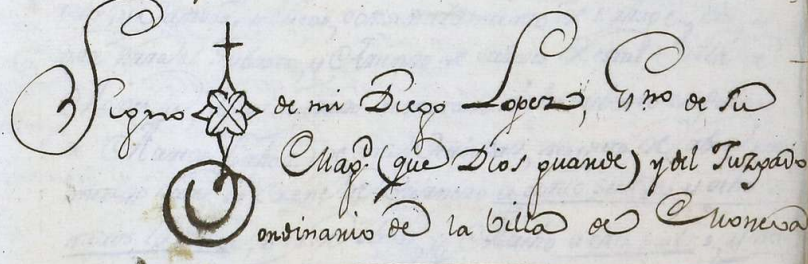 Signo de mi Diego Lopez, SSno de su
Magd. (que Dios guarde) y del Juzgado
ordinario de la Villa de